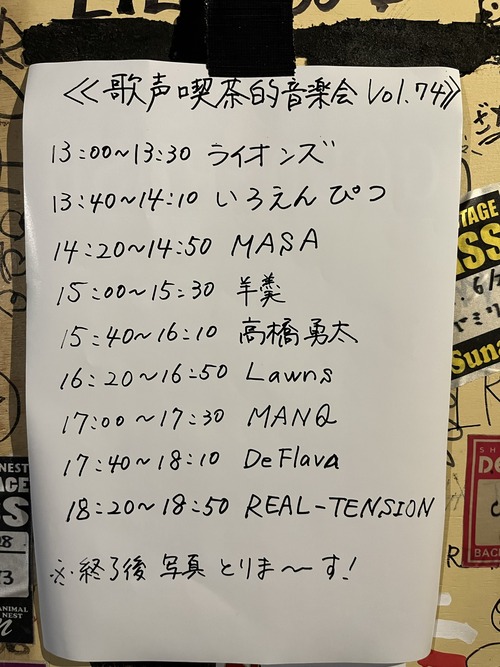 ≪歌声喫茶的音楽会 Vol.74≫
13:00~13:30 ライオンズ
13:40~14:10 いろえんぴつ
14:20~14:50 MASA
15:00~15:30 羊羹
15:40~16:10 高橋勇太
16:20~16:50 Lawns
17:00~17:30 MANQ
17:40~18:10 DeFlava
18:20~18:50 REAL-TENSION
※終了後 写真 とりま〜す!
TAGE
Suna
NEST
AGE
ANIMAL
NEST
BACK